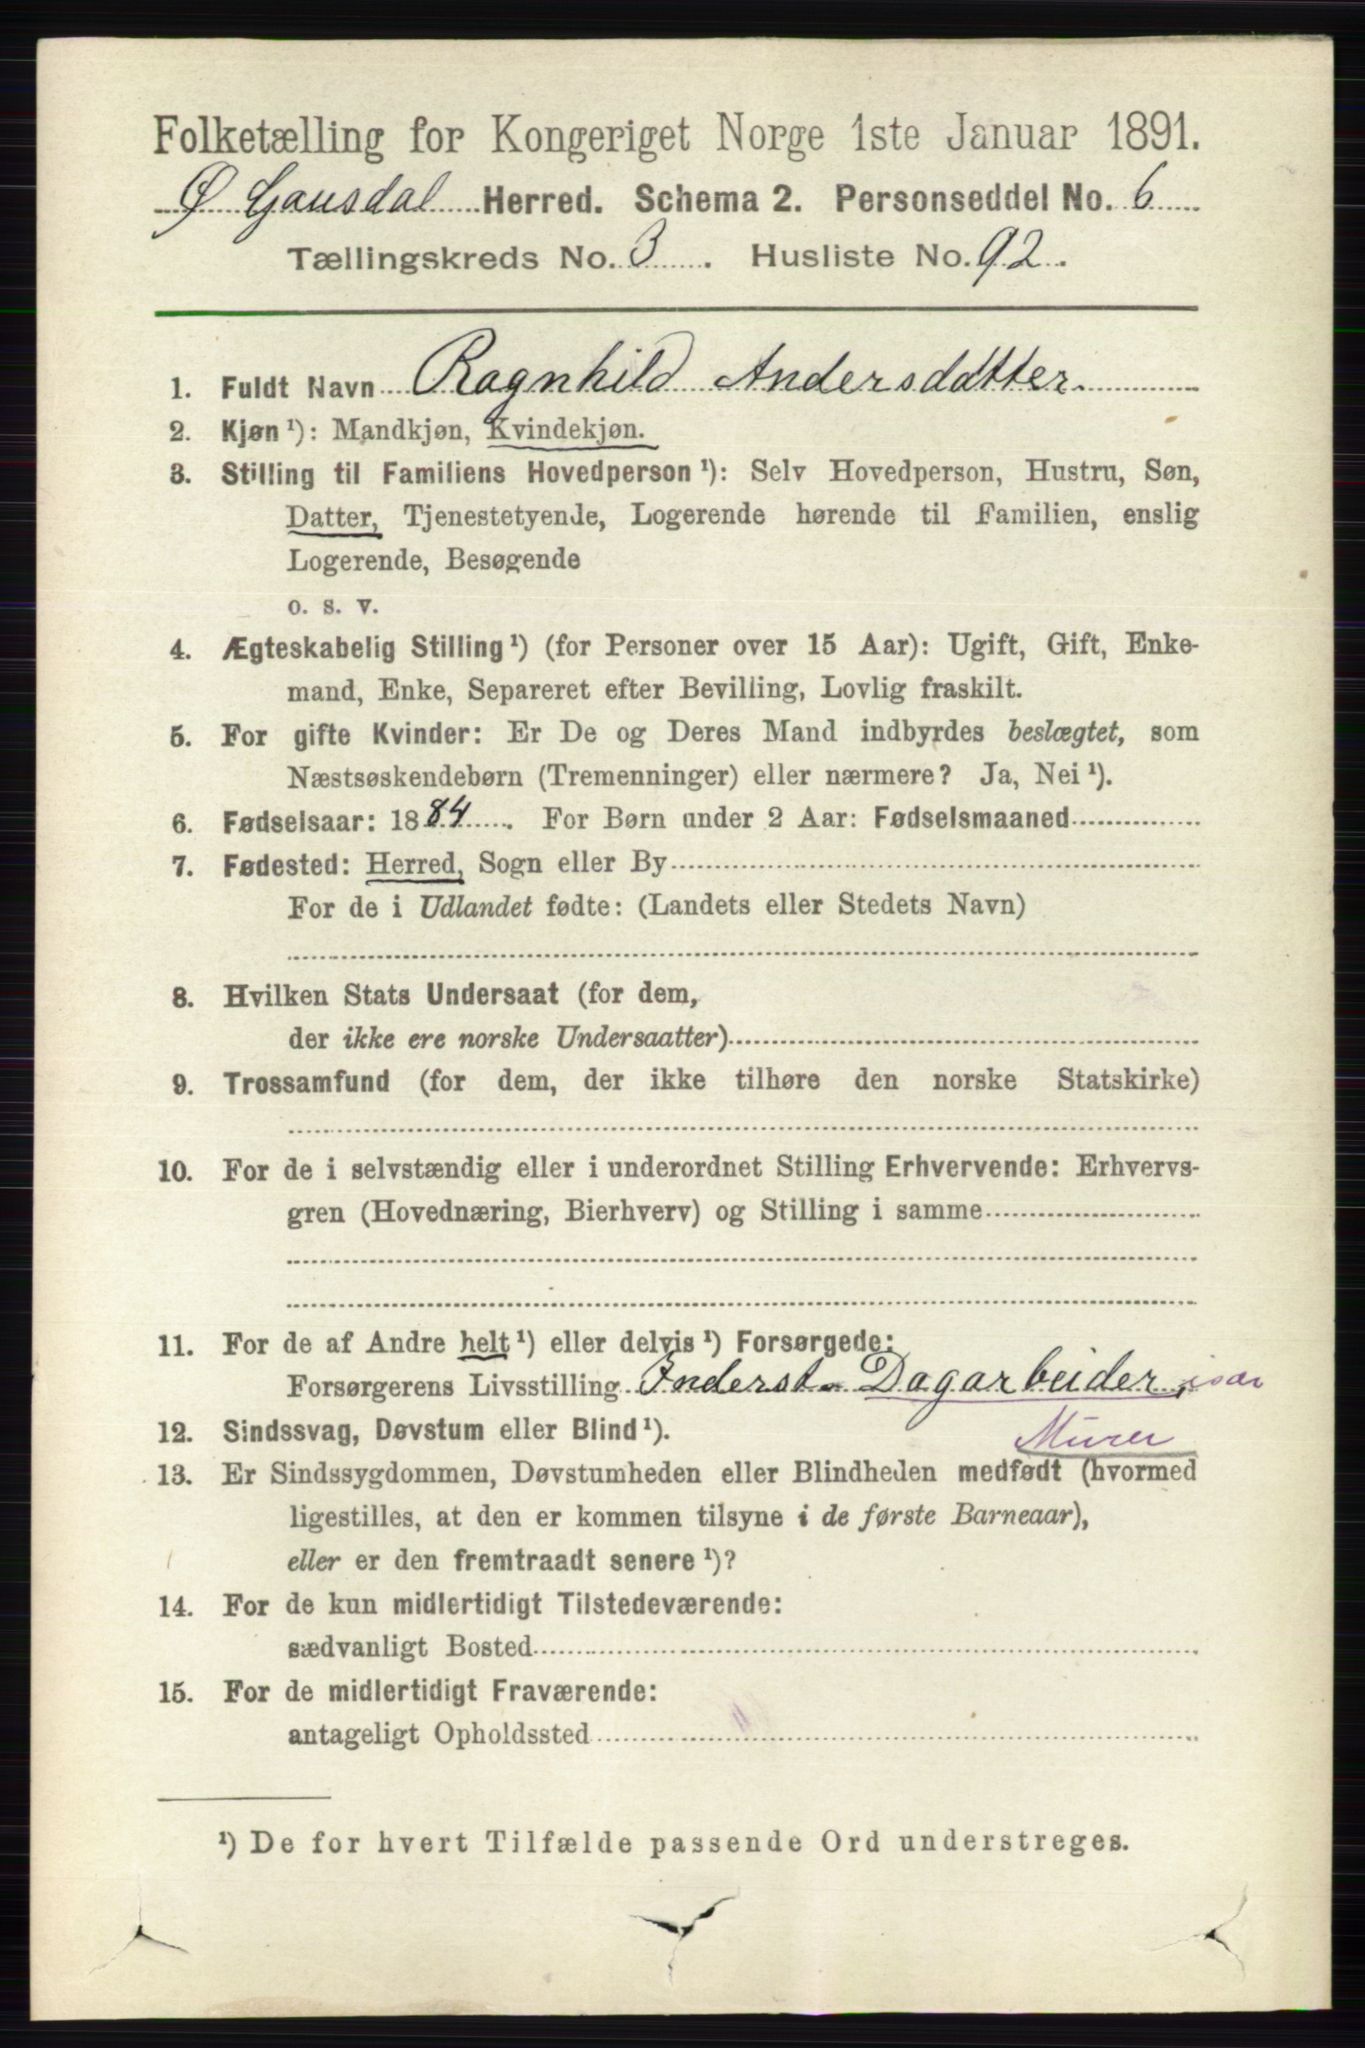 Folketælling for Kongeriget Norge 1ste Januar 1891.
Ø Gausdal Herred. Schema 2. Personseddel No. 6
Tællingskreds No. 3. Husliste No. 92.
1. Fuldt Navn Ragnhild Andersdatter.
2. Kjøn ¹): Mandkjøn, Kvindekjøn.
3. Stilling til Familiens Hovedperson ¹): Selv Hovedperson, Hustru, Søn,
Datter, Tjenestetyende, Logerende hørende til Familien, enslig
Logerende, Besøgende
o. s. v.
4. Ægteskabelig Stilling ¹) (for Personer over 15 Aar): Ugift, Gift, Enke-
mand, Enke, Separeret efter Bevilling, Lovlig fraskilt.
5. For gifte Kvinder: Er De og Deres Mand indbyrdes beslægtet, som
Næstsøskendebørn (Tremenninger) eller nærmere? Ja, Nei ¹).
6. Fødselsaar: 1884. For Børn under 2 Aar: Fødselsmaaned
7. Fødested: Herred, Sogn eller By
For de i Udlandet fødte: (Landets eller Stedets Navn)
8. Hvilken Stats Undersaat (for dem,
der ikke ere norske Undersaatter)
9. Trossamfund (for dem, der ikke tilhøre den norske Statskirke)
10. For de i selvstændig eller i underordnet Stilling Erhvervende: Erhvervs-
gren (Hovednæring, Bierhverv) og Stilling i samme
11. For de af Andre helt ¹) eller delvis ¹) Forsørgede:
Forsørgerens Livsstilling Inderst. Dagarbeider, især
Murer
12. Sindssvag, Døvstum eller Blind ¹).
13. Er Sindssygdommen, Døvstumheden eller Blindheden medfødt (hvormed
ligestilles, at den er kommen tilsyne i de første Barneaar),
eller er den fremtraadt senere ¹)?
14. For de kun midlertidigt Tilstedeværende:
sædvanligt Bosted
15. For de midlertidigt Fraværende:
antageligt Opholdssted
¹) De for hvert Tilfælde passende Ord understreges.